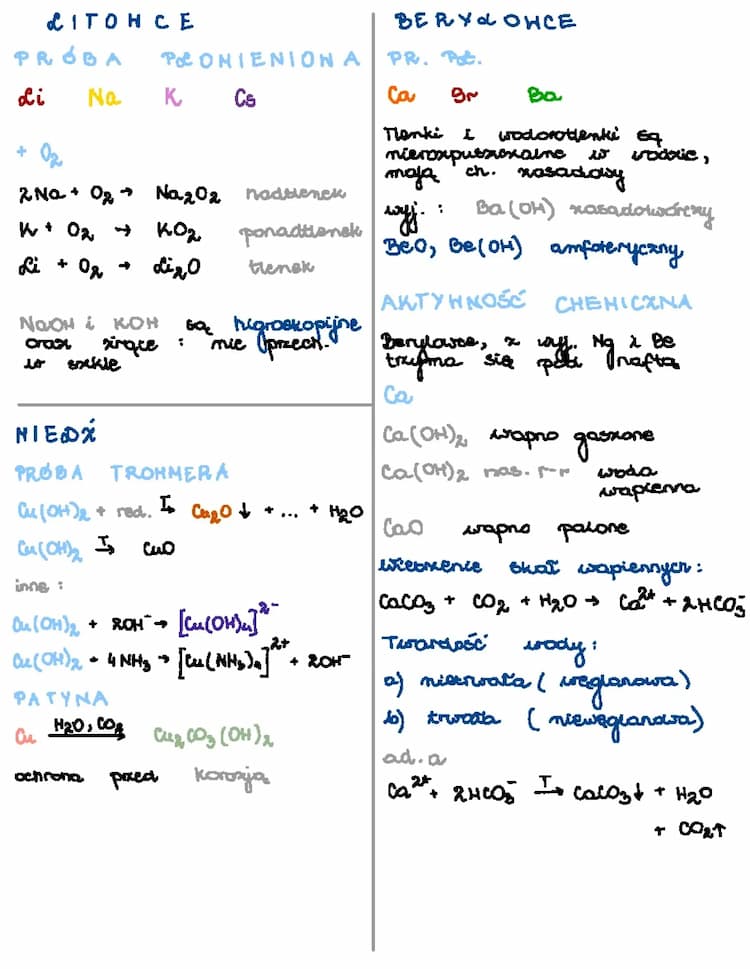 LITOWCE
PRÓBA PŁOMIENIOWA
Li Na K Cs
+ O₂
2Na + O₂ → Na₂O₂ nadtlenek
K + O₂ → KO₂ ponadtlenek
Li + O₂ → Li₂O tlenek
NaOH i KOH są higroskopijne
oraz żrące : nie przech.
w szkle
MIEDŹ
PRÓBA TROMMERA
Cu(OH)₂ + red. T→ Cu₂O ↓ + ... + H₂O
Cu(OH)₂ T→ CuO
inne :
Cu(OH)₂ + 2OH⁻ → [Cu(OH)₄]²⁻
Cu(OH)₂ + 4NH₃ → [Cu(NH₃)₄]²⁺ + 2OH⁻
PATYNA
Cu H₂O, CO₂→ Cu₂CO₃(OH)₂
ochrona przed korozją
BERYLOWCE
PR. PŁ.
Ca Sr Ba
Tlenki i wodorotlenki są
nierozpuszczalne w wodzie,
mają ch. zasadowy
wyj. : Ba(OH) zasadotwórczy
BeO, Be(OH) amfoteryczny
AKTYWNOŚĆ CHEMICZNA
Berylowce, z wyj. Mg i Be
trzyma się pod naftą
Ca
Ca(OH)₂ wapno gaszone
Ca(OH)₂ nas. r-r woda
wapienna
CaO wapno palone
Wietrzenie skał wapiennych :
CaCO₃ + CO₂ + H₂O → Ca²⁺ + 2HCO₃⁻
Twardość wody :
a) nietrwała ( węglanowa)
b) trwała ( niewęglanowa)
ad. a
Ca²⁺ + 2HCO₃⁻ T→ CaCO₃↓ + H₂O
+ CO₂↑